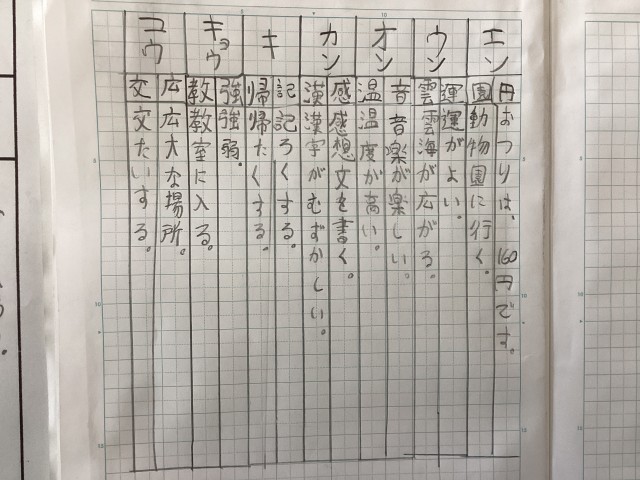 エン
円おつりは、160円です。
園動物園に行く。
ウン
運運がよい。
雲雲海が広がる。
オン
音音楽が楽しい。
温温度が高い。
カン
感感想文を書く。
漢漢字がむずかしい。
キ
記記ろくする。
帰帰たくする。
キョウ
強強弱。
教教室に入る。
コウ
広広大な場所。
交交たいする。